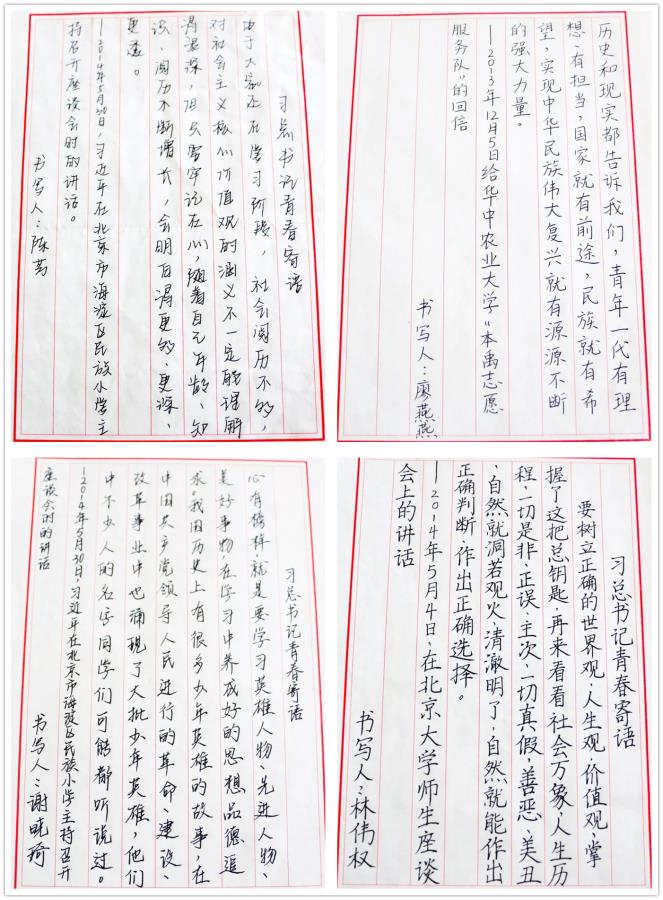 习总书记青春寄语
由于大家还在学习阶段，社会阅历不够，
对社会主义核心价值观的涵义不一定能理解
得很深，但只要牢记在心，随着自己年龄、知
识、阅历不断增长，会明白得更多、更深、
更透。
—2014年5月30日，习近平在北京市海淀区民族小学主
持召开座谈会时的讲话。
书写人：陈
历史和现实都告诉我们，青年一代有理
想、有担当，国家就有前途，民族就有希
望，实现中华民族伟大复兴就有源源不断
的强大力量。
—2013年12月5日给华中农业大学“本禹志愿
服务队”的回信
书写人：廖燕燕
习总书记青春寄语
心有榜样，就是要学习英雄人物、先进人物、
美好事物，在学习中养成好的思想品德追
求。我国历史上有很多少年英雄的故事，在
中国共产党领导人民进行的革命、建设、
改革事业中也涌现了大批少年英雄，他们
中不少人的名字同学们可能都听说过。
—2014年5月30日，习近平在北京市海淀区民族小学主持召开
座谈会时的讲话
书写人：谢晓琦
习总书记青春寄语
要树立正确的世界观、人生观、价值观，掌
握了这把总钥匙，再来看看社会万象、人生历
程，一切是非、正误、主次，一切真假、善恶、美丑
，自然就洞若观火、清澈明了，自然就能作出
正确判断、作出正确选择。
—2014年5月4日，在北京大学师生座谈
会上的讲话
书写人：林伟权